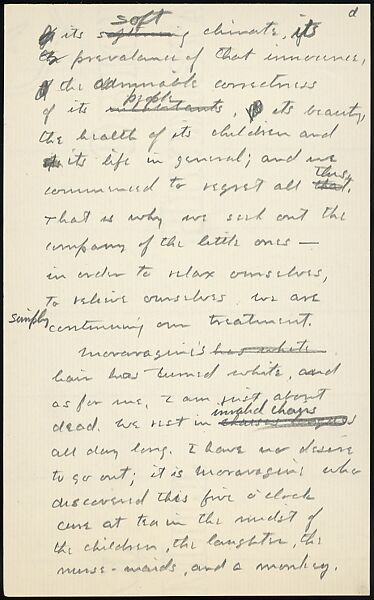 d
soft
its softening climate, its
prevalence of that innocence,
the admirable correctness
people
of its inhabitants, its beauty,
the health of its children and
its life in general; and we
this,
commenced to regret all that.
That is why we seek out the
company of the little ones —
in order to relax ourselves,
to relieve ourselves. we are
simply
continuing our treatment.
Moravagine's has white
hair has turned white, and
as for me, I am just about
invalid chairs
dead. We rest in chaises longues
all day long. I have no desire
to go out; it is Moravagine who
discovered this five o'clock
cure at tea in the midst of
the children, the laughter, the
nurse-maids, and a monkey.